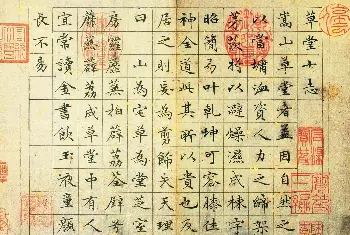 草堂十志
嵩山草堂者蓋因自然之
以當墉洫資人力之締架
茅茨將以避燥濕成棟宇
昭簡易叶乾坤可容膝休
神全道此其所以貴也及
居之則妄為剪飾失天理
曰山為宅草為堂芝室
房羅蘼蕪拍薜荔荃壁兮
蘼蕪薜荔成草堂中有人
宜常讀金書飲玉液童顏
長不易